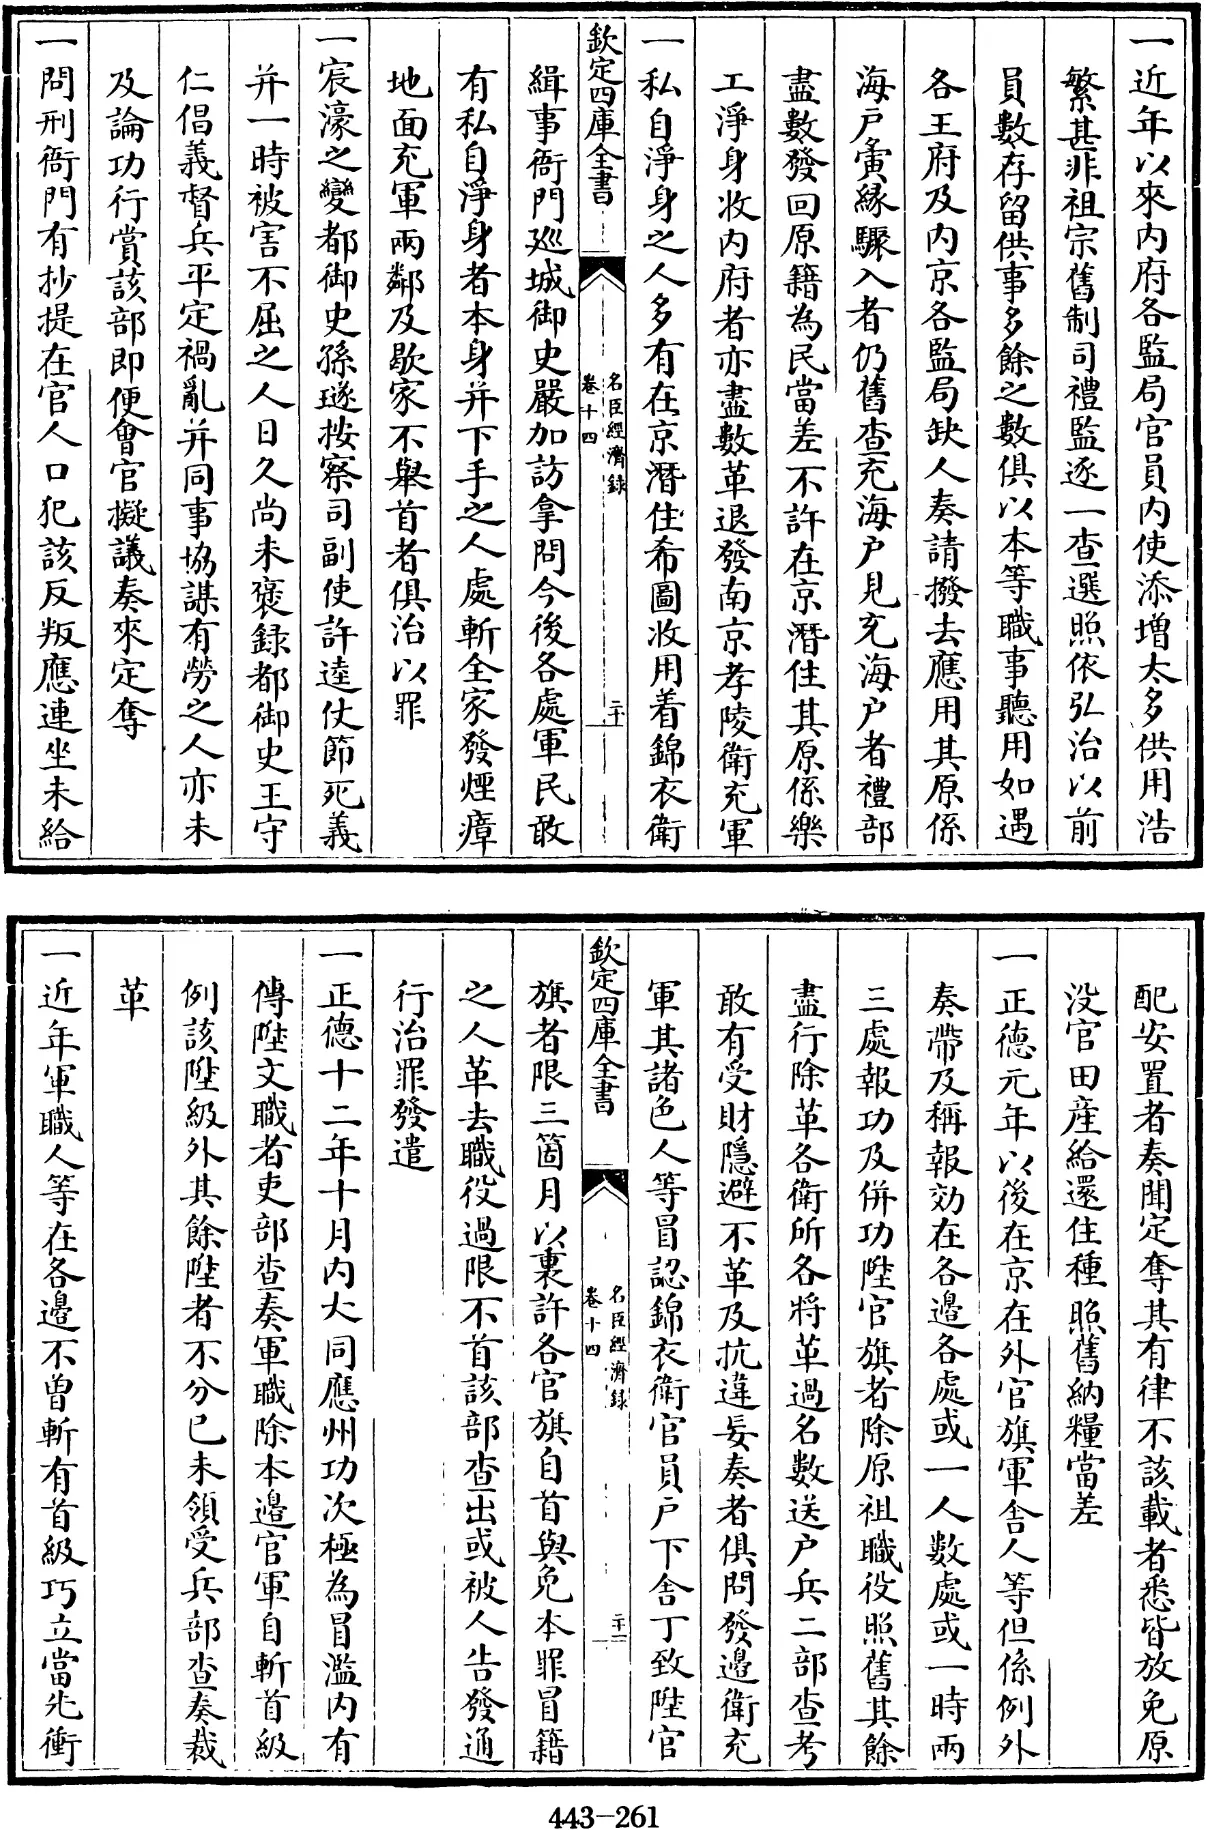 一近年以來内府各監局官員内使添增太多供用浩
繁甚非祖宗舊制司禮監逐一查選照依弘治以前
員數存留供事多餘之數俱以本等職事聽用如遇
各王府及内京各監局缺人奏請撥去應用其原係
海户夤緣驟入者仍舊查充海户見充海户者禮部
盡數發回原籍為民當差不許在京潛住其原係樂
工淨身收内府者亦盡數革退發南京孝陵衛充軍
一私自淨身之人多有在京潛住希圖收用着錦衣衛
欽定四庫全書
名臣經濟録
卷十四
二十
緝事衙門廵城御史嚴加訪拿問今後各處軍民敢
有私自淨身者本身并下手之人處斬全家發煙瘴
地面充軍兩鄰及歇家不舉首者俱治以罪
一宸濠之變都御史孫璲按察司副使許逵仗節死義
并一時被害不屈之人日久尚未褒録都御史王守
仁倡義督兵平定禍亂并同事協謀有勞之人亦未
及論功行賞該部即便會官擬議奏來定奪
一問刑衙門有抄提在官人口犯該反叛應連坐未給
配安置者奏聞定奪其有律不該載者悉皆放免原
没官田産給還住種照舊納糧當差
一正德元年以後在京在外官旗軍舎人等但係例外
奏帶及稱報効在各邉各處或一人數處或一時兩
三處報功及併功陞官旗者除原祖職役照舊其餘
盡行除革各衛所各將革過名數送户兵二部查考
敢有受財隱避不革及抗違妄奏者俱問發邉衛充
軍其諸色人等冒認錦衣衛官員户下舎丁致陞官
欽定四庫全書
名臣經濟録
卷十四
二十一
旗者限三箇月以裏許各官旗自首與免本罪冒籍
之人革去職役過限不首該部查出或被人告發通
行治罪發遣
一正德十二年十月内大同應州功次極為冒濫内有
傳陞文職者吏部查奏軍職除本邉官軍自斬首級
例該陞級外其餘陞者不分已未領受兵部查奏裁
革
一近年軍職人等在各邉不曽斬有首級巧立當先衝
443-261